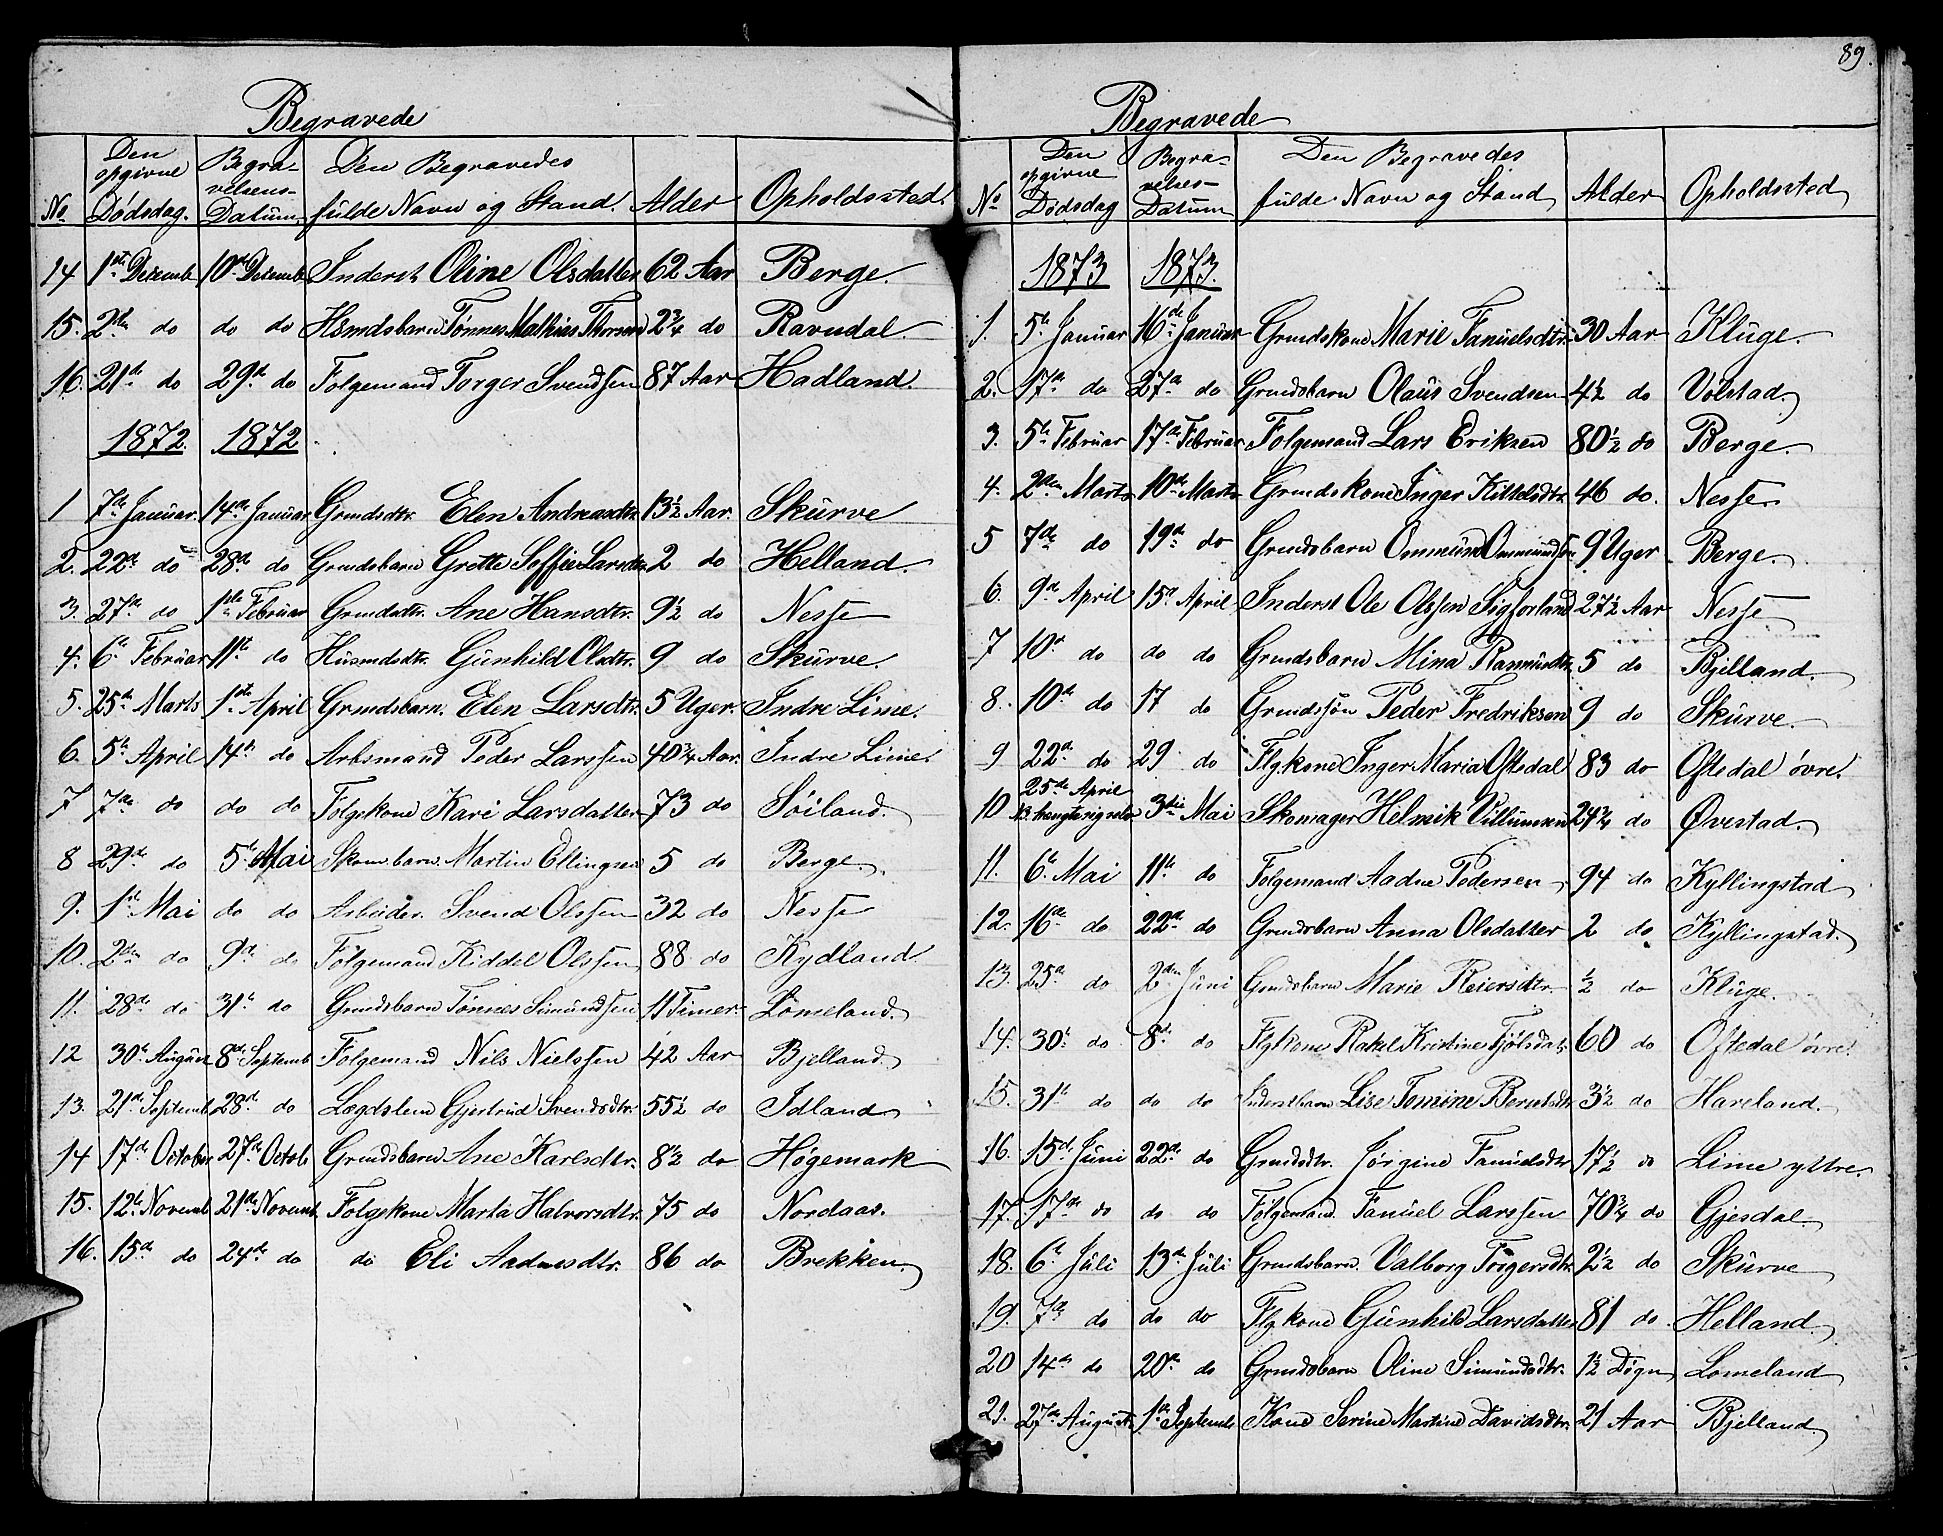 Begravede
No. Den opgivne Dødsdag. Begravelsens-Datum Den Begravedes fulde Navn og Stand. Alder Opholdssted.
14 1ste Dezemb. 10de Dezemb. Inderst. Oline Olsdatter 62 Aar Berge.
15. 2den do do do Hsmdsbarn Tønnes Mathias Thorsen 2¾ do Ravndal.
16. 21de do 29de do Følgemand Torger Svendssen 87 Aar Hadland.
1872. 1872
1 7de Januar. 14de Januar Grmdsdtr. Elen Andreasdtr. 13½ Aar. Skurve
2. 22de do 28de do Grmdsbarn Grette Soffie Larsdtr. 2 do Helland.
3. 27de do 1ste Februar Grmdsdtr. Ane Hansdtr. 9½ do Nesse
4. 6te Februar 11te do Husmdsdtr. Gunhild Olsdtr. 9 do Skurve.
5. 25de Marts 1ste April Grmdsbarn. Elen Larsdtr. 5 Uger. Indre Lime.
6. 5te April 14de do Arbsmand Peder Larssen 40¾ Aar. Indre Lime.
7 7de do do do Følgekone Kari Larsdatter 73 do Søiland.
8 29de do 5te Mai Skom. barn. Martin Ellingsen 5 do Berge.
9. 1ste Mai do do Arbeider. Svend Olssen 32 do Nesse
10. 2den do 9de do Følgemand Kiddel Olssen 88 do Kydland.
11. 28de do 31te do Grmdsbarn Tønnes Simundssen 11 Timer. Lomeland.
12 30te August 8de Septemb. Følgemand Nils Nielssen 42 Aar Bjelland.
13. 21de Septemb. 28de do Lægdslem Gjertrud Svendsdtr. 55½ do Idland
14 17de October 27de Octob. Grmdsbarn Ane Karlsdtr. 8½ do Høgemark
15. 12te Novemb. 21de Novemb. Følgekone Marta Halvorsdtr. 75 do Nordaas.
16. 15de do 24de do do Eli Aadnesdtr. 86 do Brekken.
89.
Begravede
No Den opgivne Dødsdag Begravelses-Datum Den Begravedes fulde Navn og Stand Alder Opholdssted
1873 1873.
1. 5te Januar 16de Januar Grmdskone Marie Tanuelsdtr. 30 Aar Kluge.
2. 17de do 27de do Grmdsbarn Olaus Svendsen 4½ do Volstad.
3. 5te Februar 17de Februar Følgemand Lars Eriksen 80½ do Berge.
4. 2den Marts 10de Marts Grmdskone Inger Kittelsdtr. 46 do. Nesse
5 7de do 19de do Grmdsbarn Ommund Ommundsen 9 Uger Berge.
6. 9de April 15de April Inderst Ole Olssen Sigforland 27½ Aar Nesse
7 10de do do do Grmdsbarn Mina Rasmusdtr. 5 do Bjelland.
8. 10de do 17 do Grmdssøn Peder Fredriksen 9 do Skurve.
9 22de do 29 do Flgkone Inger Maria Oftedal 83 do Oftedal øvre.
10 25de April hengte sig selv 3die Mai Skomager Helmik Villumsen 24¾ do Øvestad.
11. 6te Mai 11te do Følgemand Aadne Pedersen 94 do Kyllingstad
12. 16de do 22de do Grmdsbarn Anna Olsdatter 2 do Kyllingstad.
13. 25de do 2den Juni Grmdsbarn Marie Reiersdtr. ½ do Kluge.
14. 30te do 8de do Flgkone Rakel Kristine Tjølsdatr. 60 do Oftedal øvre.
15. 31te do do do Inderstbarn Lise Tomine Berntsdtr. 3½ do Haveland.
16. 15de Juni 22de do Grmdsdtr. Jørgine Tanuelsdtr 17½ do Lime yttre.
17. 17de do do do Følgemand. Tanuel Larssen 70¾ do Gjesdal.
18. 6te Juli 13de Juli Grmdsbarn. Valborg Torgersdtr. 2½ do Skurve
19. 7de do do do Flgkone Gunhild Larsdatter 81 do. Helland.
20 14de do 20de do Grmdsbarn Oline Simundsdtr. 1½ Døgn Lomeland
21. 27de August 1ste Septemb. Kone Serine Martine Davidsdtr. 21 Aar Bjelland.